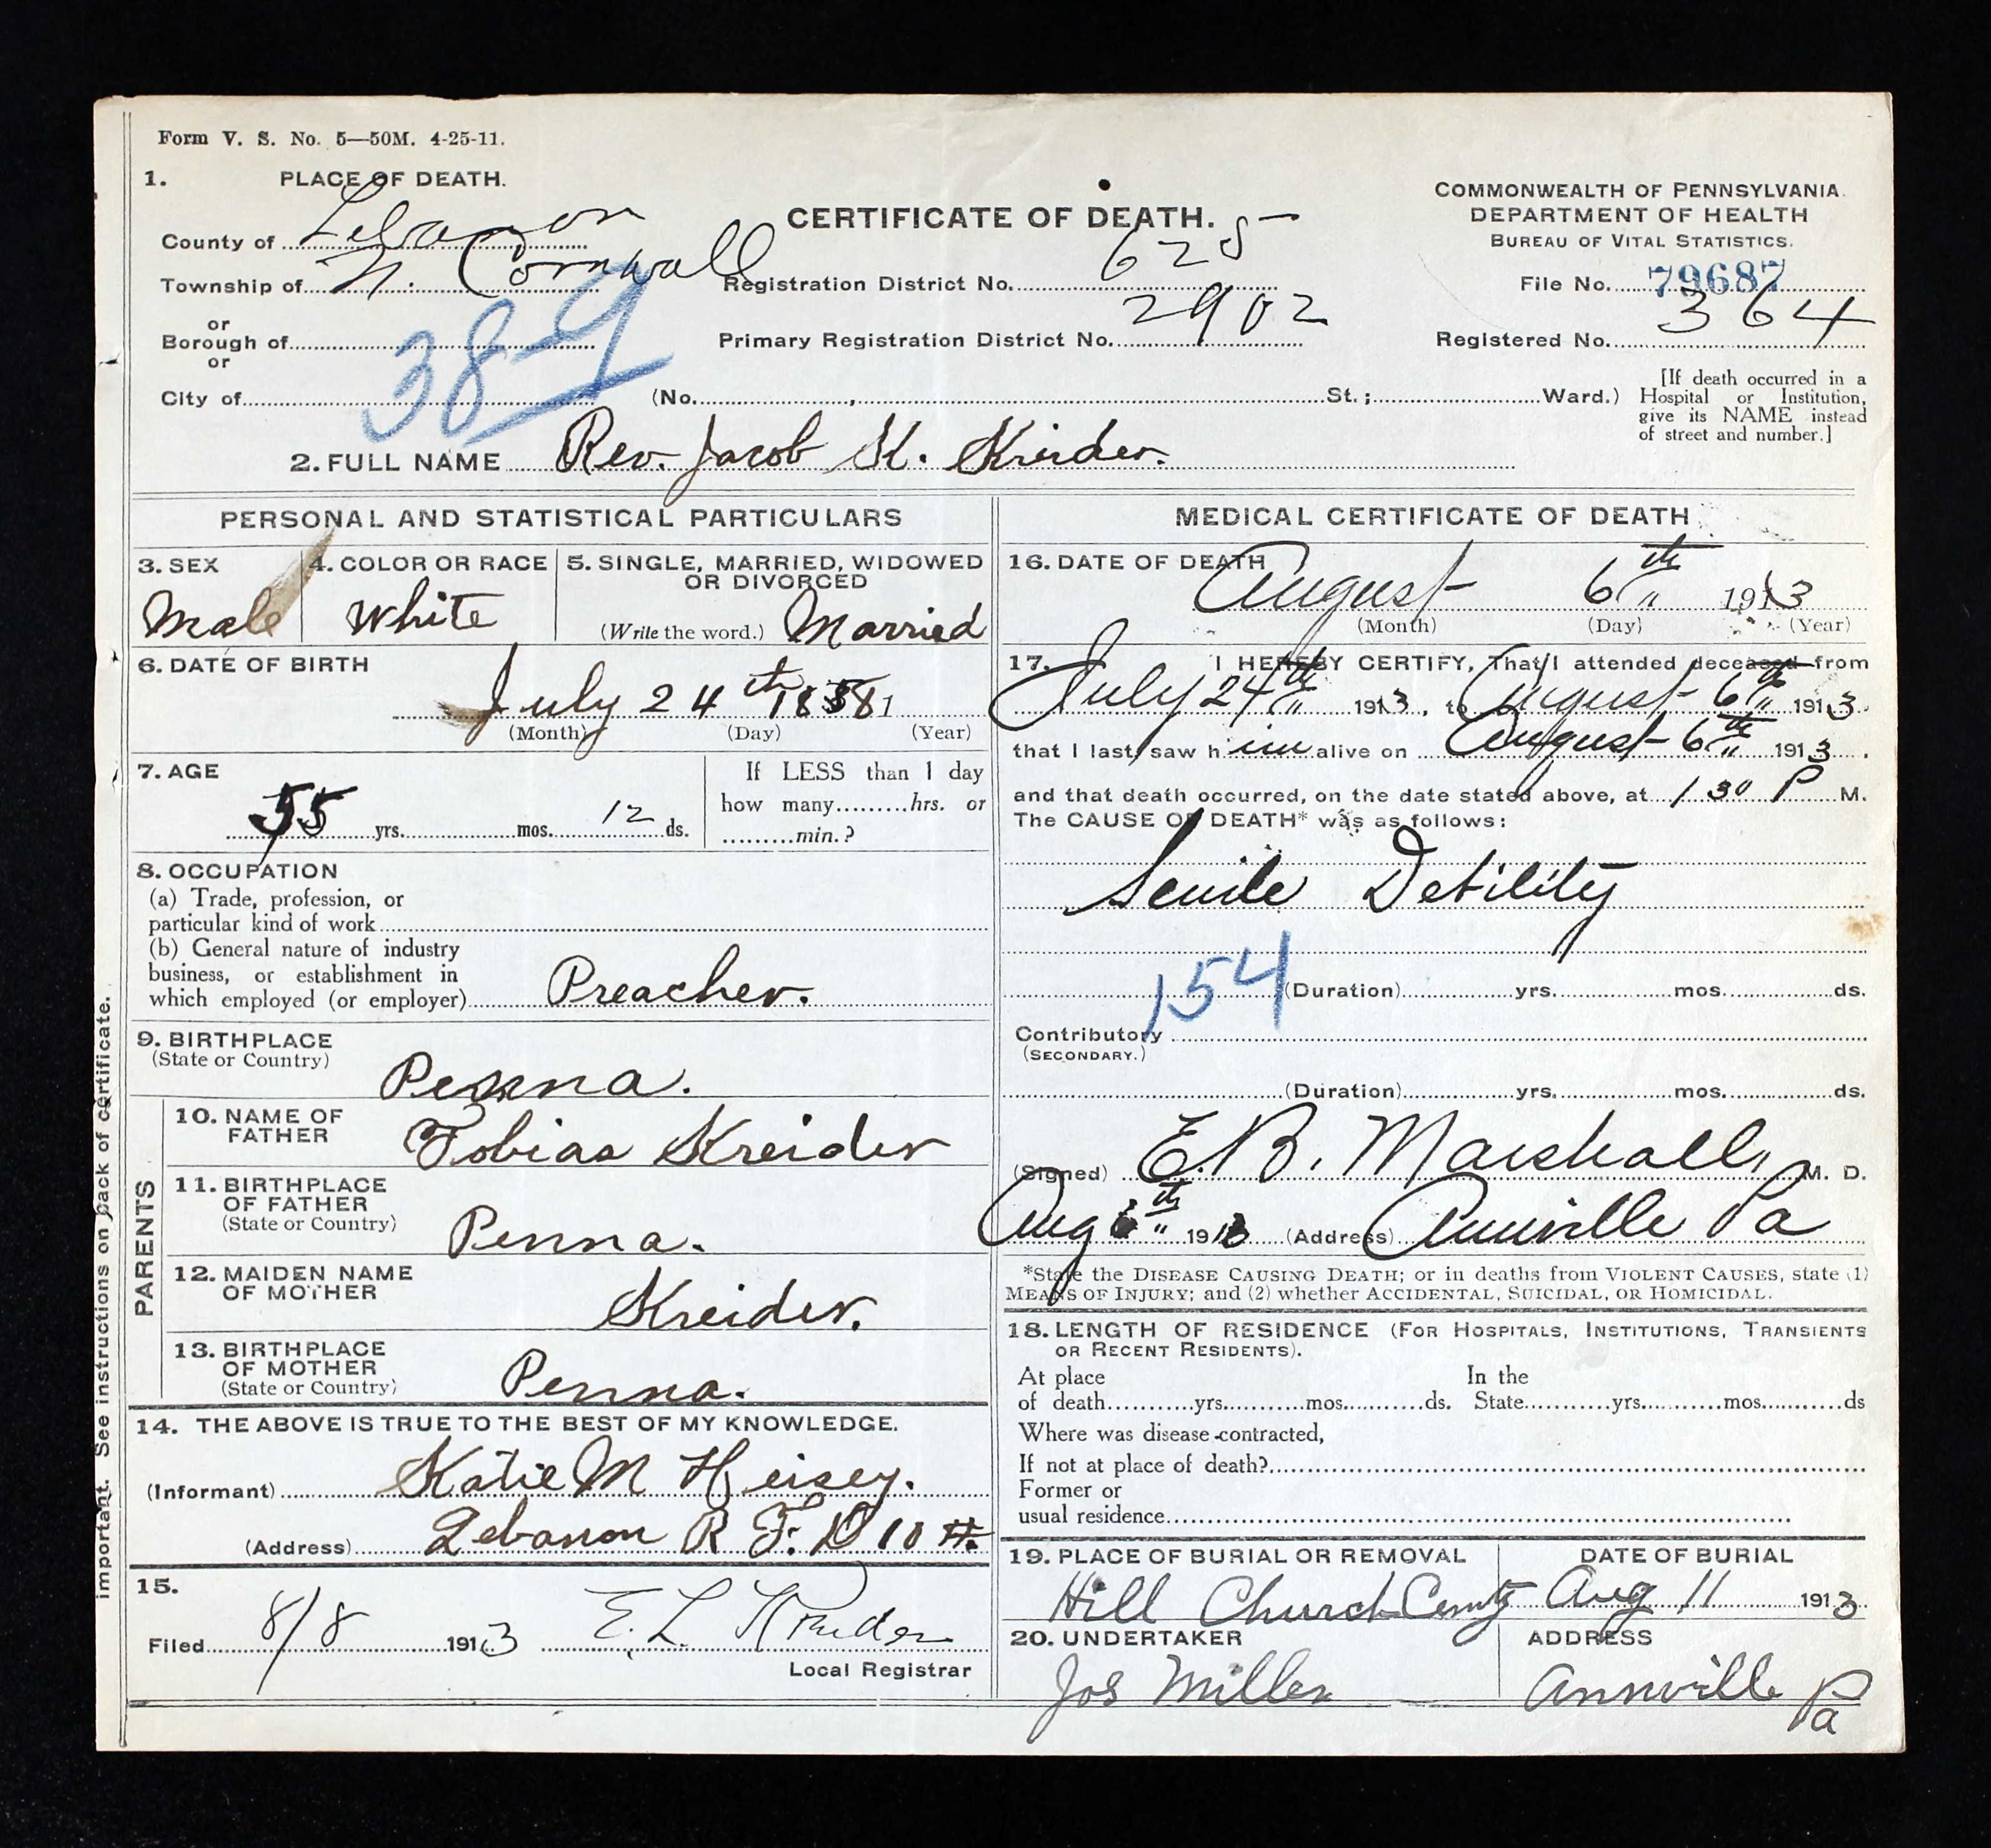 Form V. S. No. 5—50M. 4-25-11.
1. PLACE OF DEATH.
County of Lebanon
Township of N. Cornwall
or
Borough of
or
City of
38-9
CERTIFICATE OF DEATH.
Registration District No. 625
Primary Registration District No. 2902
(No. , St.; Ward.)
COMMONWEALTH OF PENNSYLVANIA.
DEPARTMENT OF HEALTH
BUREAU OF VITAL STATISTICS.
File No. 79687
Registered No. 364
[If death occurred in a
Hospital or Institution,
give its NAME instead
of street and number.]
2. FULL NAME Rev. Jacob K. Kreider.
PERSONAL AND STATISTICAL PARTICULARS
3. SEX
Male
4. COLOR OR RACE
White
5. SINGLE, MARRIED, WIDOWED
OR DIVORCED
(Write the word.) Married
6. DATE OF BIRTH
July 24th
(Month) (Day) (Year)
7. AGE
55 yrs. mos. 12 ds.
If LESS than 1 day
how many hrs. or
min.?
8. OCCUPATION
(a) Trade, profession, or
particular kind of work
(b) General nature of industry
business, or establishment in
which employed (or employer) Preacher.
9. BIRTHPLACE
(State or Country)
Penna.
PARENTS
10. NAME OF
FATHER
Tobias Kreider
11. BIRTHPLACE
OF FATHER
(State or Country)
Penna.
12. MAIDEN NAME
OF MOTHER
Kreider.
13. BIRTHPLACE
OF MOTHER
(State or Country)
Penna.
14. THE ABOVE IS TRUE TO THE BEST OF MY KNOWLEDGE.
(Informant) Katie M Heisey.
(Address) Lebanon R F. D 10 #.
15.
Filed 8/8 1913 E. L. Kreider
Local Registrar
MEDICAL CERTIFICATE OF DEATH
16. DATE OF DEATH
August 6th 1913
(Month) (Day) (Year)
17. I HEREBY CERTIFY, That I attended deceased from
July 24th 1913, to August 6th 1913
that I last saw him alive on August 6th 1913.
and that death occurred, on the date stated above, at 1 30 P M.
The CAUSE OF DEATH* was as follows:
Senile Debility
154
(Duration) yrs. mos. ds.
Contributory
(SECONDARY.)
(Duration) yrs. mos. ds.
(Signed) E. B. Marshall, M. D.
Aug 6th 1913 (Address) Annville Pa
*State the DISEASE CAUSING DEATH; or in deaths from VIOLENT CAUSES, state (1)
MEANS OF INJURY; and (2) whether ACCIDENTAL, SUICIDAL, OR HOMICIDAL.
18. LENGTH OF RESIDENCE (FOR HOSPITALS, INSTITUTIONS, TRANSIENTS
OR RECENT RESIDENTS).
At place In the
of death yrs. mos. ds. State yrs. mos. ds
Where was disease contracted,
If not at place of death?
Former or
usual residence
19. PLACE OF BURIAL OR REMOVAL
Hill Church Cemty
DATE OF BURIAL
Aug 11 1913
20. UNDERTAKER
Jos Miller
ADDRESS
Annville Pa
important. See instructions on back of certificate.